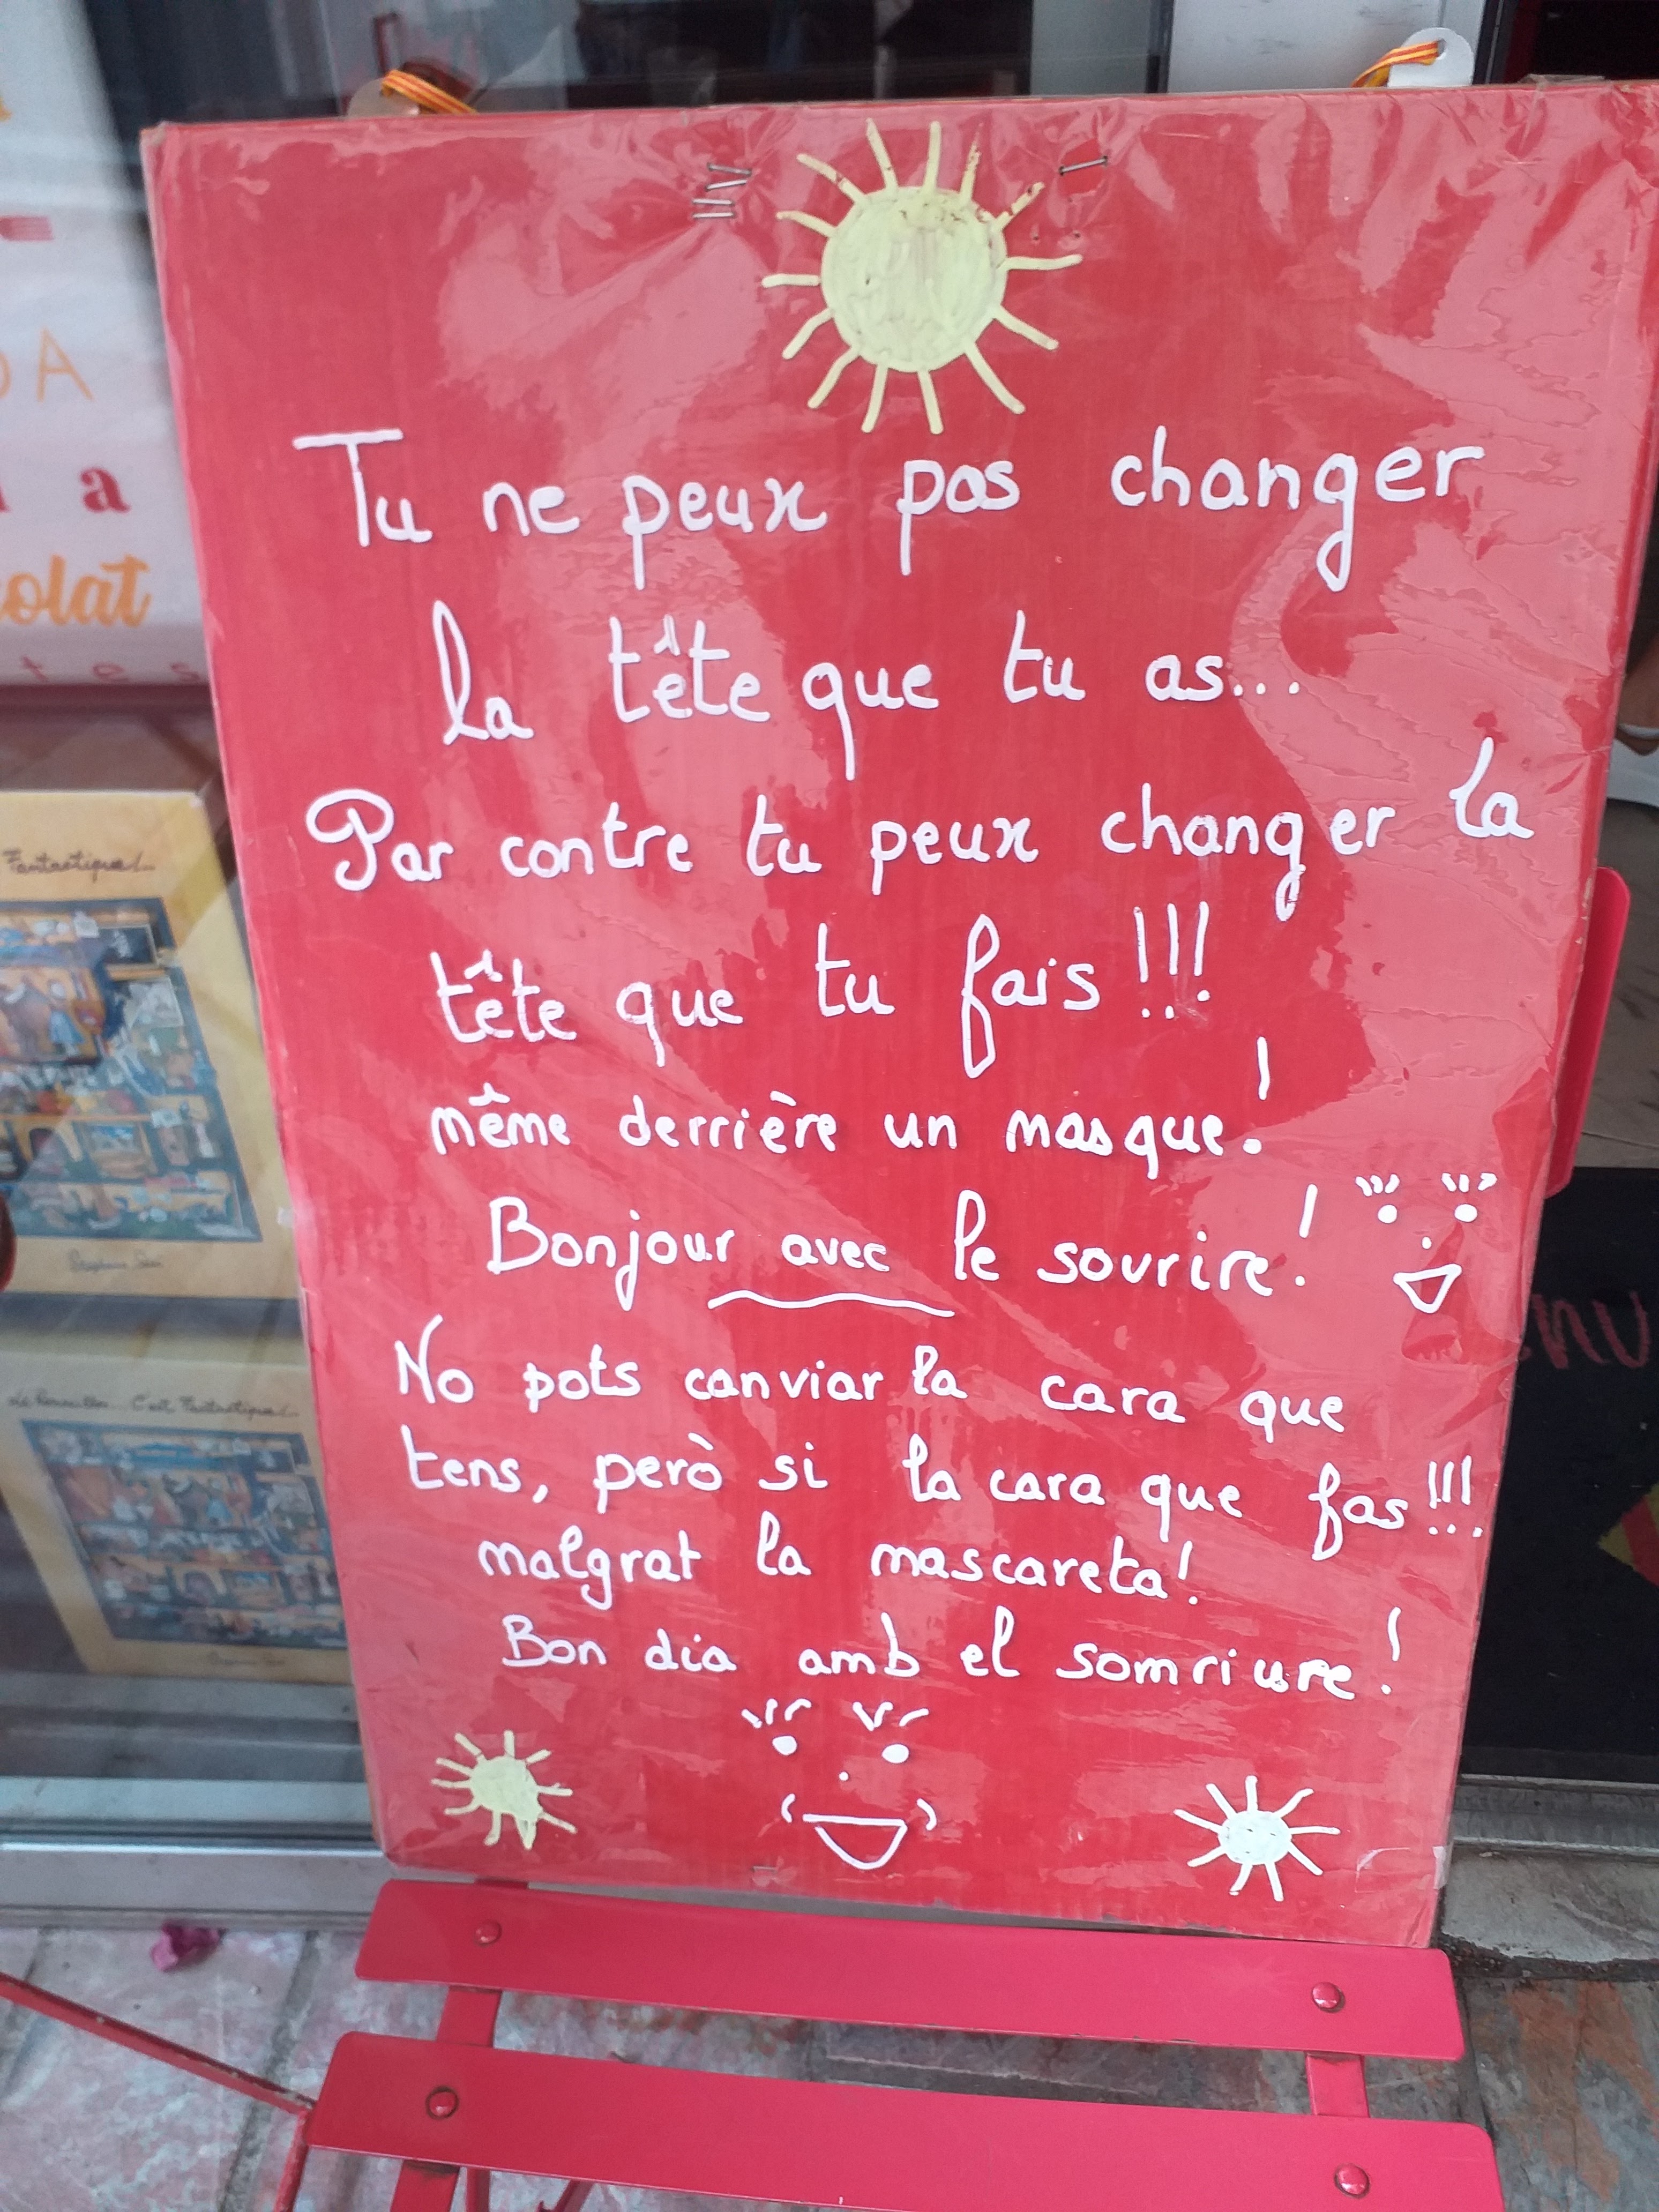 Tu ne peux pas changer
la tête que tu as...
Par contre tu peux changer la
tête que tu fais !!!
même derrière un masque !
Bonjour avec le sourire !
No pots canviar la cara que
tens, però si la cara que fas !!!
malgrat la mascareta !
Bon dia amb el somriure !
DA
a
colat
tes
Fantastique !...
Le Roussillon C'est Fantastique !...
enu